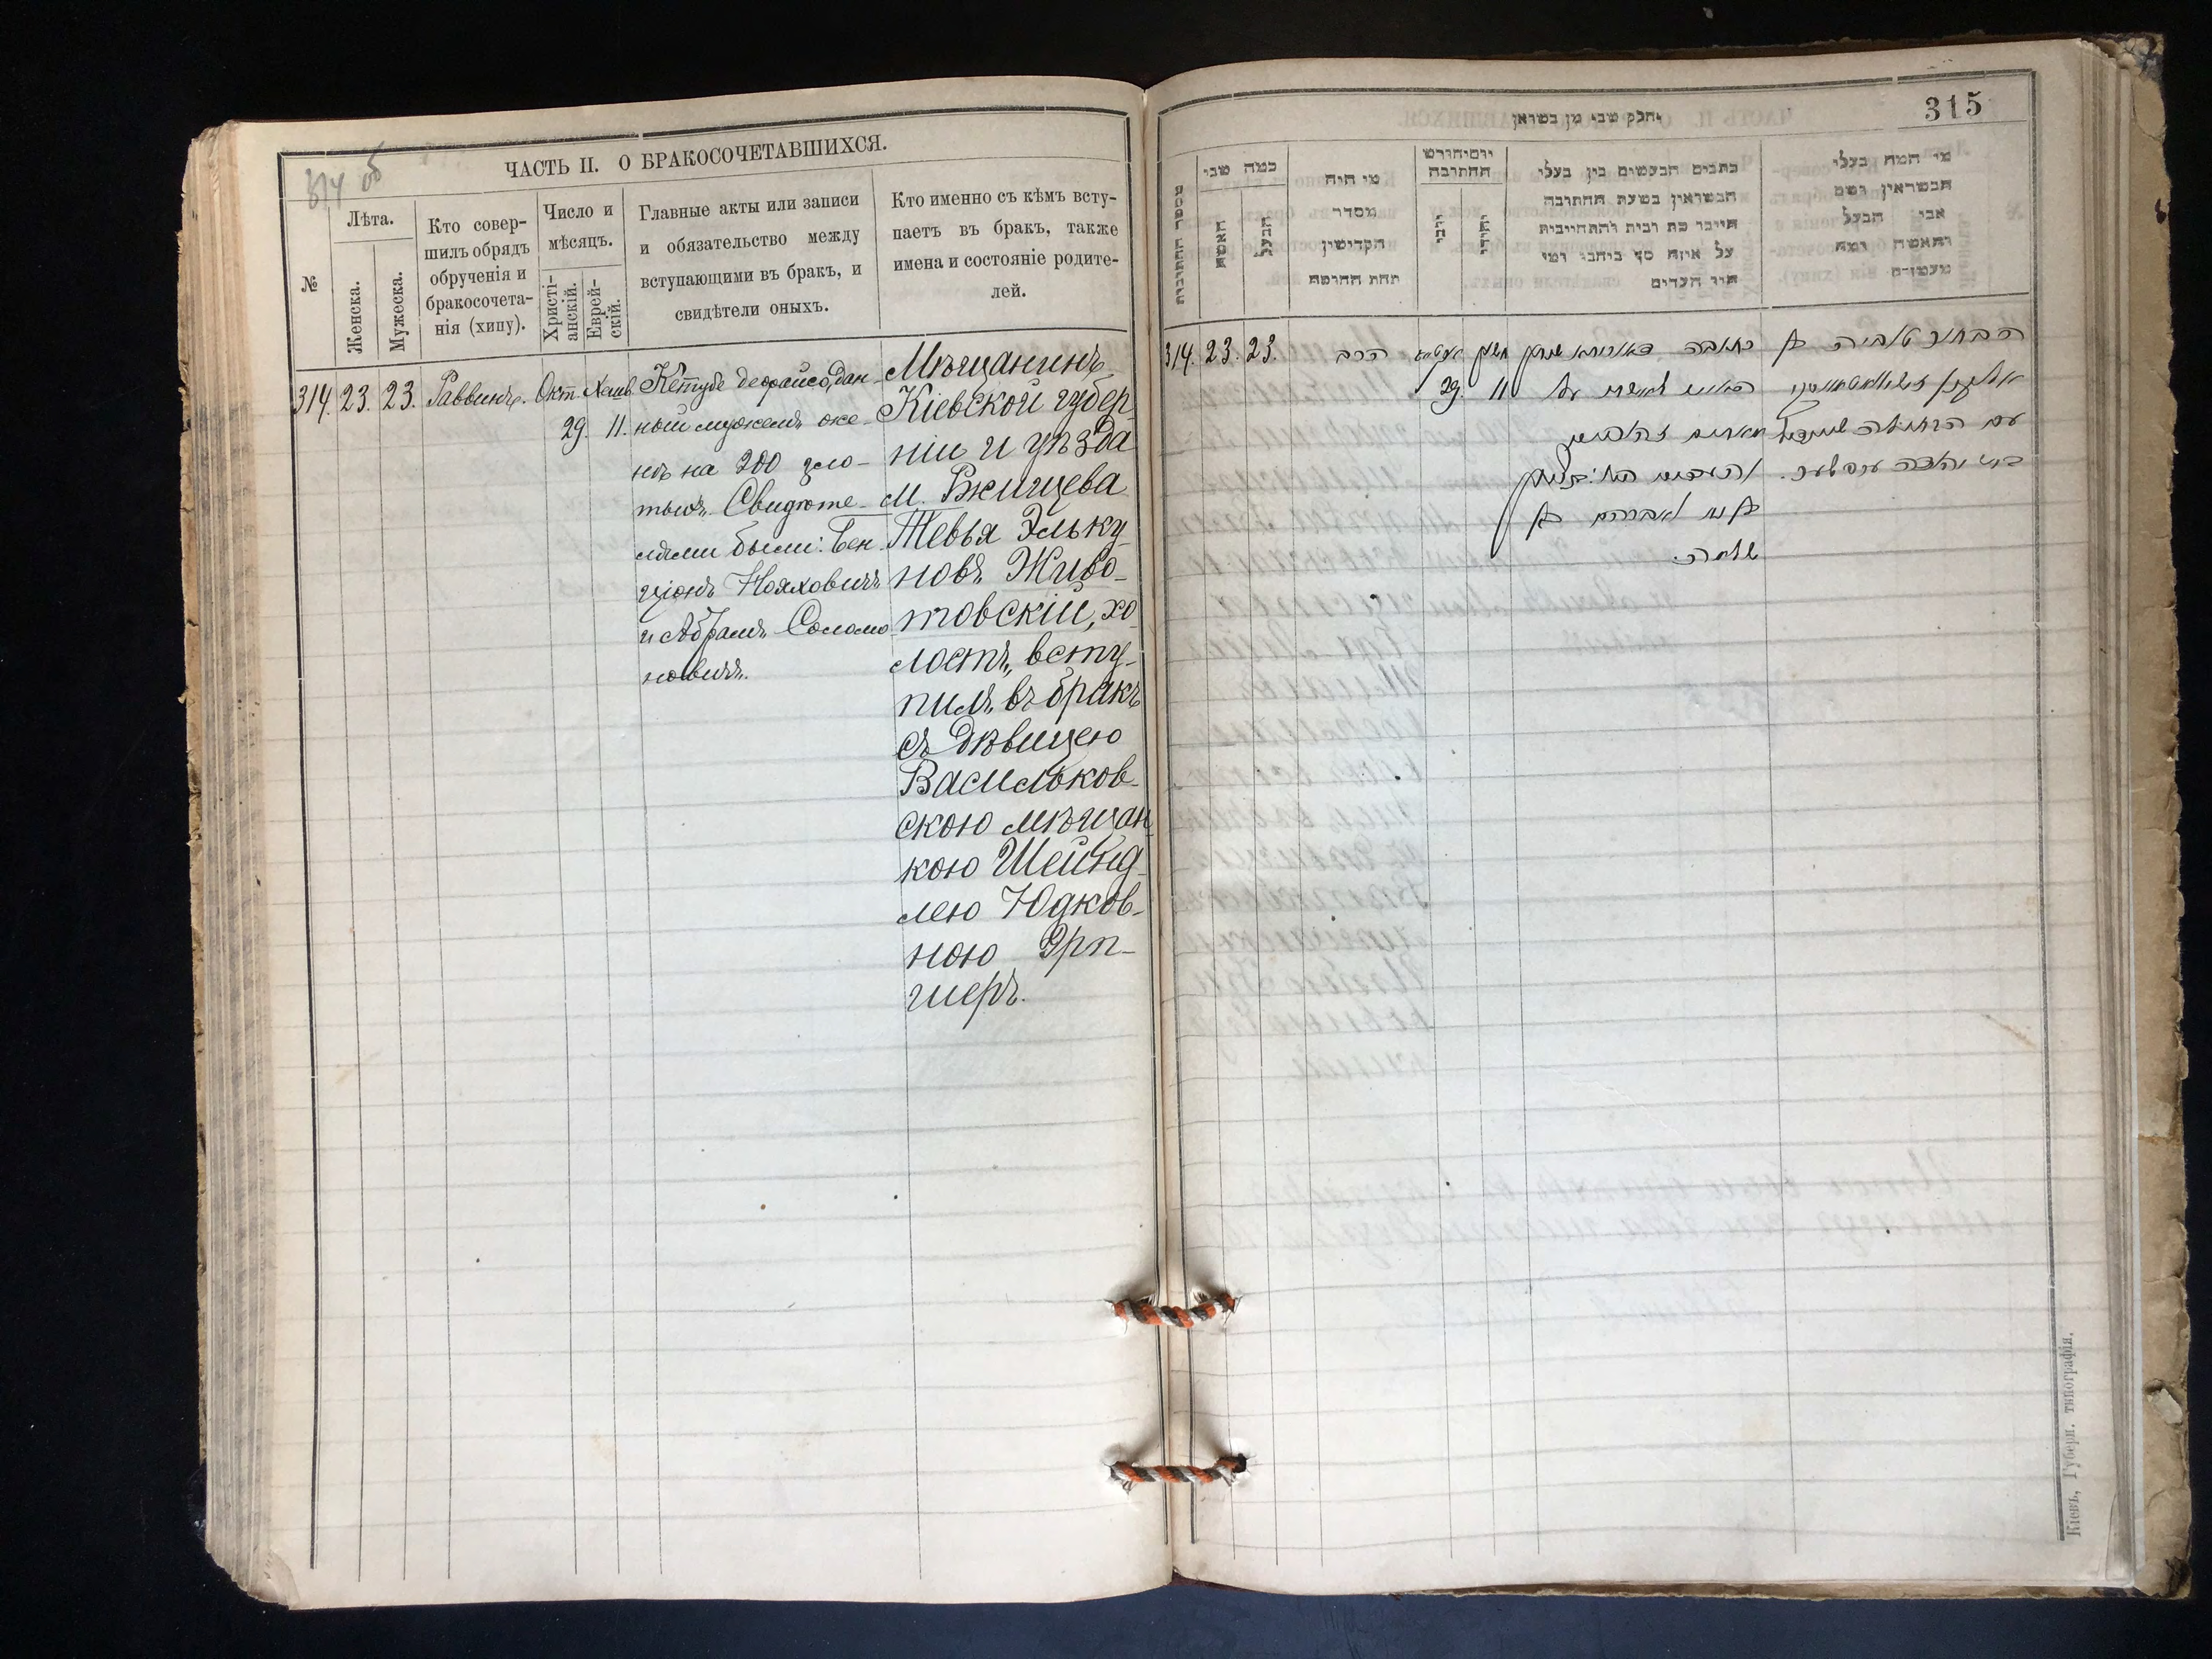 314 об
ЧАСТЬ II. О БРАКОСОЧЕТАВШИХСЯ.
№
Лѣта.
Женска.
Мужеска.
Кто совер-
шилъ обрядъ
обрученія и
бракосочета-
нія (хипу).
Число и
мѣсяцъ.
Христі-
анскій.
Еврей-
скій.
Главные акты или записи
и обязательство между
вступающими въ бракъ, и
свидѣтели оныхъ.
Кто именно съ кѣмъ всту-
паетъ въ бракъ, также
имена и состояніе родите-
лей.
314. 23. 23. Раввинъ. Окт. Хешв.
29. 11.
Кетубе деорайсо, дан-
ный мужемъ же-
нѣ на 200 зло-
тыхъ. Свидѣте-
лями были: Бен-
ціонъ Нояховичъ
и Абрамъ Соломо-
новичъ.
Мѣщанинъ
Кіевской губер-
ніи и уѣзда
м. Ржищева
Тевья Эльку-
новъ Живо-
товскій, хо-
лостъ, всту-
пилъ въ бракъ
съ дѣвицею
Васильков-
скою мѣщан-
кою Шейнд-
лею Юдков-
ною Эрп-
шеръ.
315
וחלק שבי מן בשראן
מספר החתונות
כמה שני
האשה
הבעל
מי היה
מסדר
הקדושין
תחת החופה
יום וחודש
החתונה
נוצרי
יהודי
כתבים הנעשים בין בעלי
הנשואין בשעת החתונה
על איזה סך
מי המה בעלי
הנשואין ושם
אבי הבעל
והאשה ומה
מעמדם
314. 23. 23. הרב
29. 11
כתובה דאורייתא
הבחור טוביה בן
עם הבתולה שיינדל
בת יהודה
והעדים
אברהם בן
שלמה.
Кіевъ, Губерн. типографія.